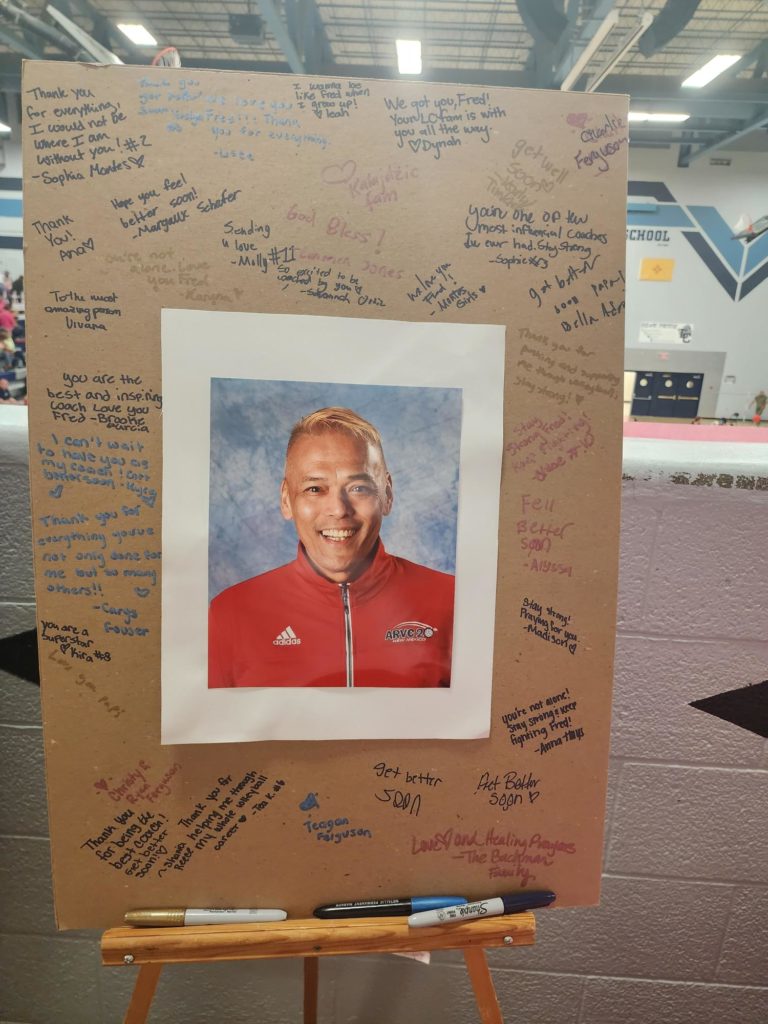 Thank you
for everything,
I would not be
where I am
without you! #2
-Sophia Montes
Thank you
you for everything.
I wanna be
like Fred when
I grow up!
Leah
We got you, Fred!
Your LC fam is with
you all the way.
Dynah
Charlie
Ferguson
get well
soon
Kalajdzic
fam
Hope you feel
better soon!
-Margaux Schafer
God Bless!
Cameron Jones
you're one of the
most influential coaches
I've ever had. Stay Strong
-Sophie
Thank
You!
Ana
Sending
u love
-Molly #11
So excited to be
coached by you
-Susannah
We love you
Fred!
-Montes
Girls
get better
soon papa!
Bella
you're not
alone. Love
you Fred
-Karyna
To the most
amazing person
Viviana
Thank you for
pushing and supporting
me through volleyball.
Stay strong!
you are the
best and inspiring
coach Love you
Fred -Brooke
Garcia
I can't wait
to have you as
my coach! Get
better soon! -Kyra
Stay
strong Fred!
Keep fighting!
Thank you for
everything youve
not only done for
me but so many
others!!
-Carys
Fouser
Fell
Better
soon
-Alyssa
you are a
superstar
Kira #8
Love you papi
Stay strong!
Praying for you
-Madison
you're not alone!
Stay strong & keep
fighting Fred!
-Anna Hays
adidas
ARVC 20
Christy &
Reese
Ferguson
Thank You
for being the
best coach!
Get better
soon!
~Shawna
Reese
Thank you for
helping me through
my whole volleyball
career
Teagan
Ferguson
get better
soon
Get Better
Soon
Love and Healing Prayers
-The Bachman
Family
SCHOOL
Sharpie